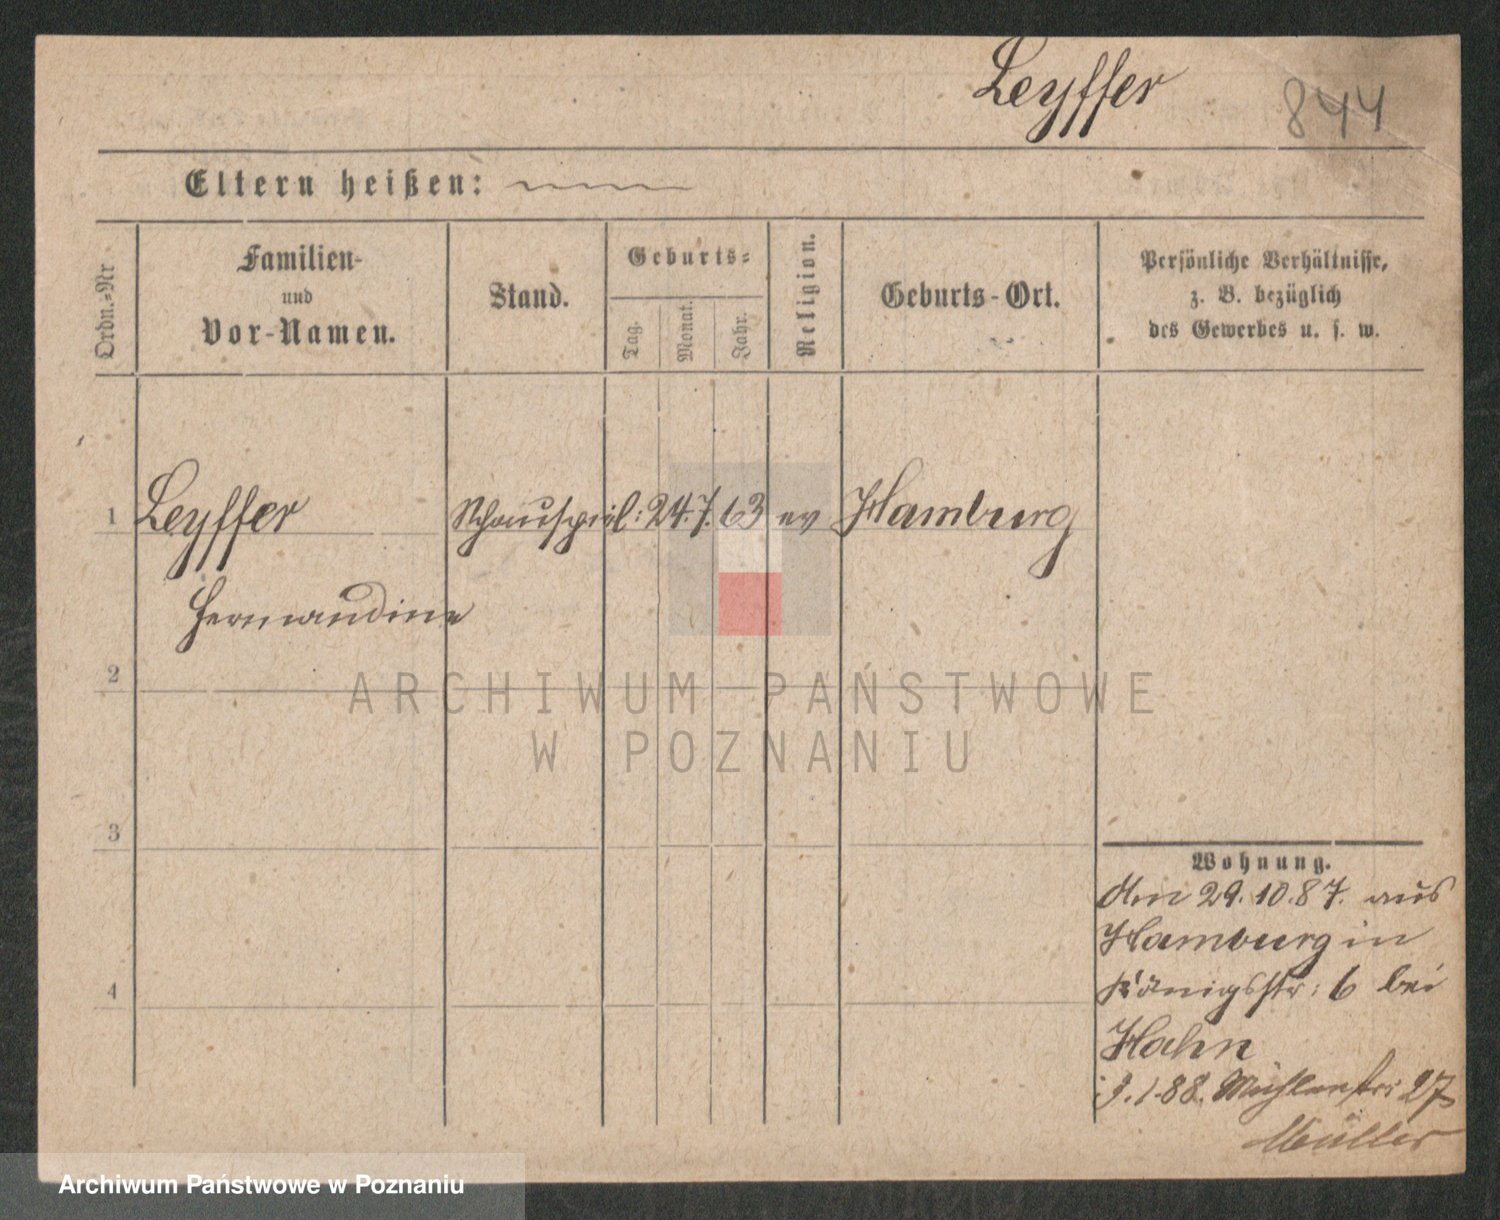 Leyffer
844
Eltern heißen:
Ordn.=Nr
Familien-
und
Vor-Namen.
Stand.
Geburts=
Tag.
Monat.
Jahr.
Religion.
Geburts-Ort.
Persönliche Verhältnisse,
z. B. bezüglich
des Gewerbes u. s. w.
1 Leyffer Schauspiel: 24. 7. 63 ev Hamburg
Hermandine
2
3
4
Wohnung.
Am 29.10.87. aus
Hamburg in
Königsstr: 6 bei
Hahn
3.1.88. Mühlenstr 27
Müller
ARCHIWUM PAŃSTWOWE
W POZNANIU
Archiwum Państwowe w Poznaniu